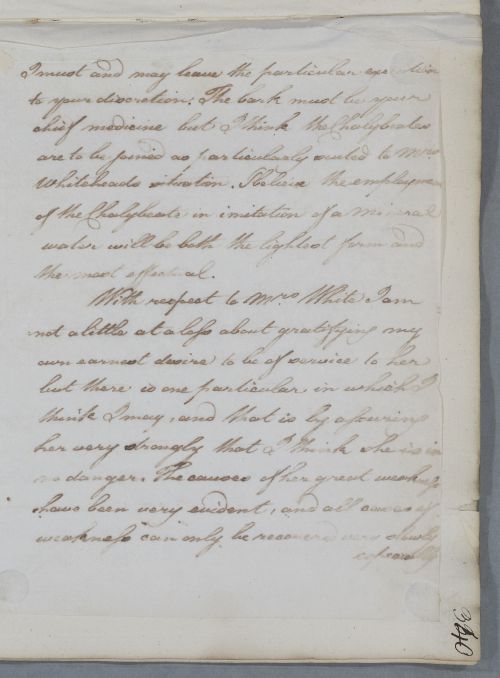 I must and may leave the particular execution
to your discretion. The bark must be your
chief medicine but I think the Chalybeates
are to be joined as particularly suited to Mrs
Whiteheads situation. I believe the employmen
of the Chalybeate in imitation of a Mineral
water will be both the lightest form and
the most effectual.
With respect to Mrs White I am
not a little at a loss about gratifying my
own earnest desire to be of service to her
but there is one particular in which I
think I may, and that is by assuring
her very strongly that I think she is in
no danger. The causes of her great weakness
have been very evident, and all cases of
weakness can only be recovered very slowly
especially
340